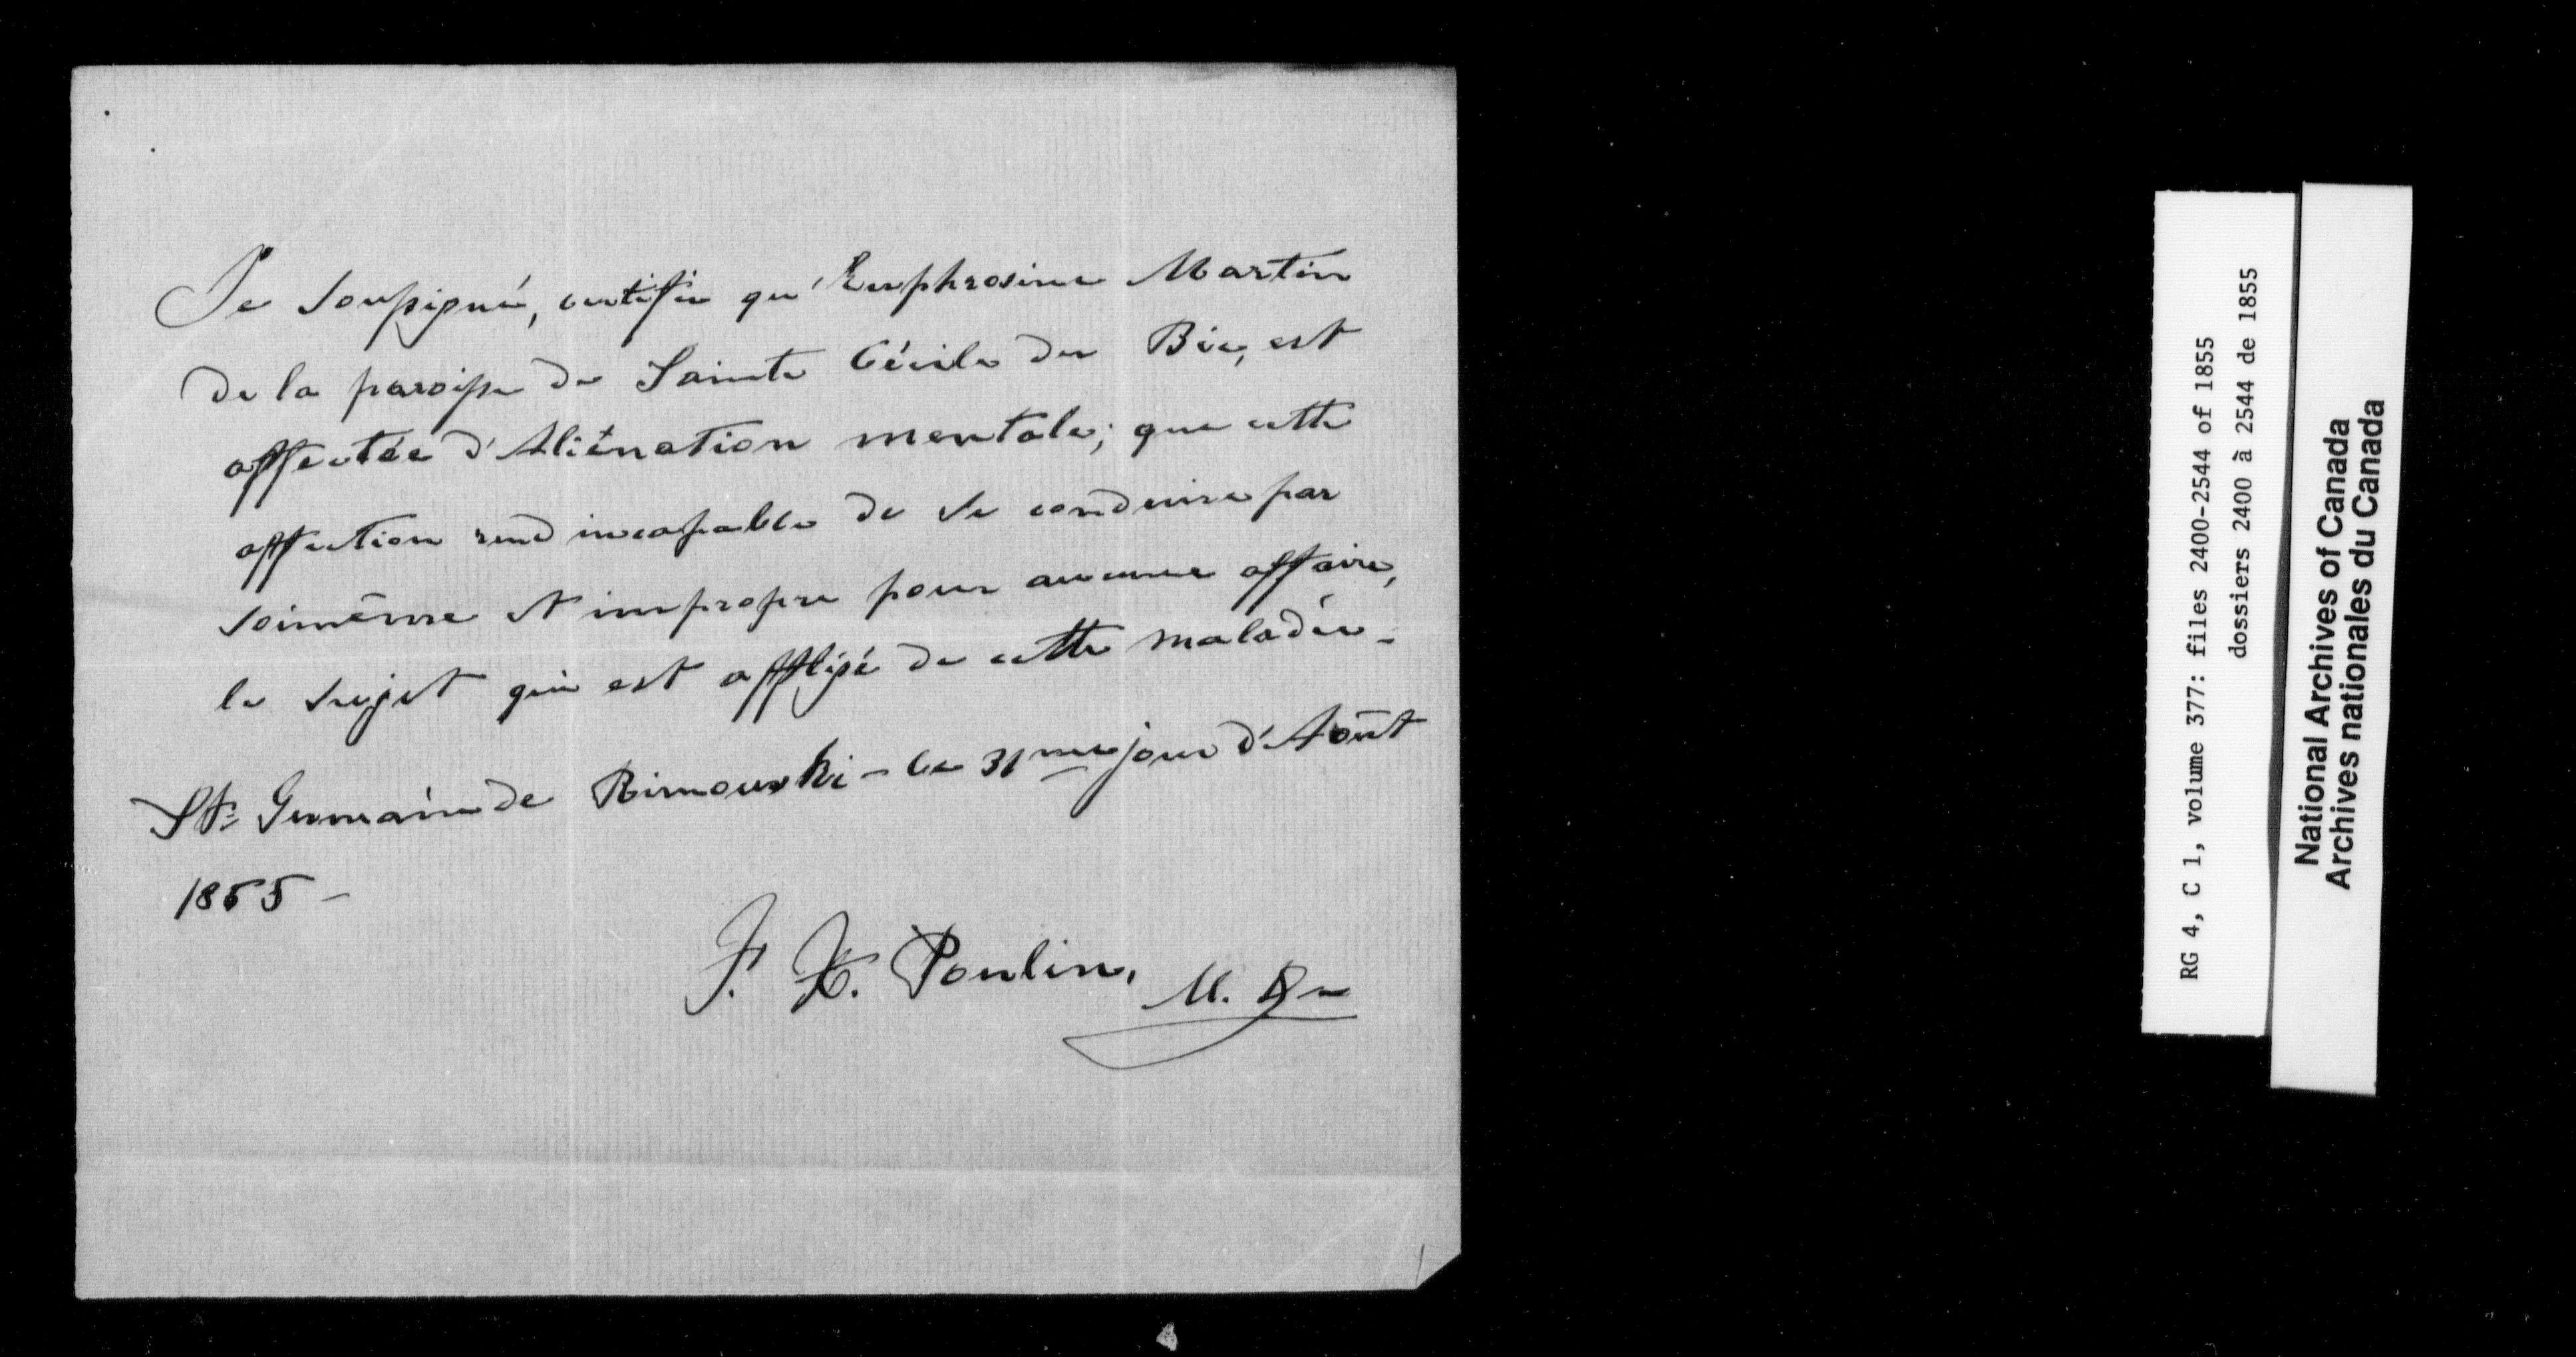 Je soussigné, certifie qu'Euphrosine Martin
de la paroisse de Sainte Cécile du Bic, est
affectée d'Aliénation mentale; que cette
affection rend incapable de se conduire par
soimême et impropre pour aucune affaire,
le sujet qui est affligé de cette maladie -
St. Germain de Rimouski - le 31me jour d'Août
1855 -
J. X. Poulin, M. Dn
RG 4, C 1, volume 377: files 2400-2544 of 1855
dossiers 2400 à 2544 de 1855
National Archives of Canada
Archives nationales du Canada